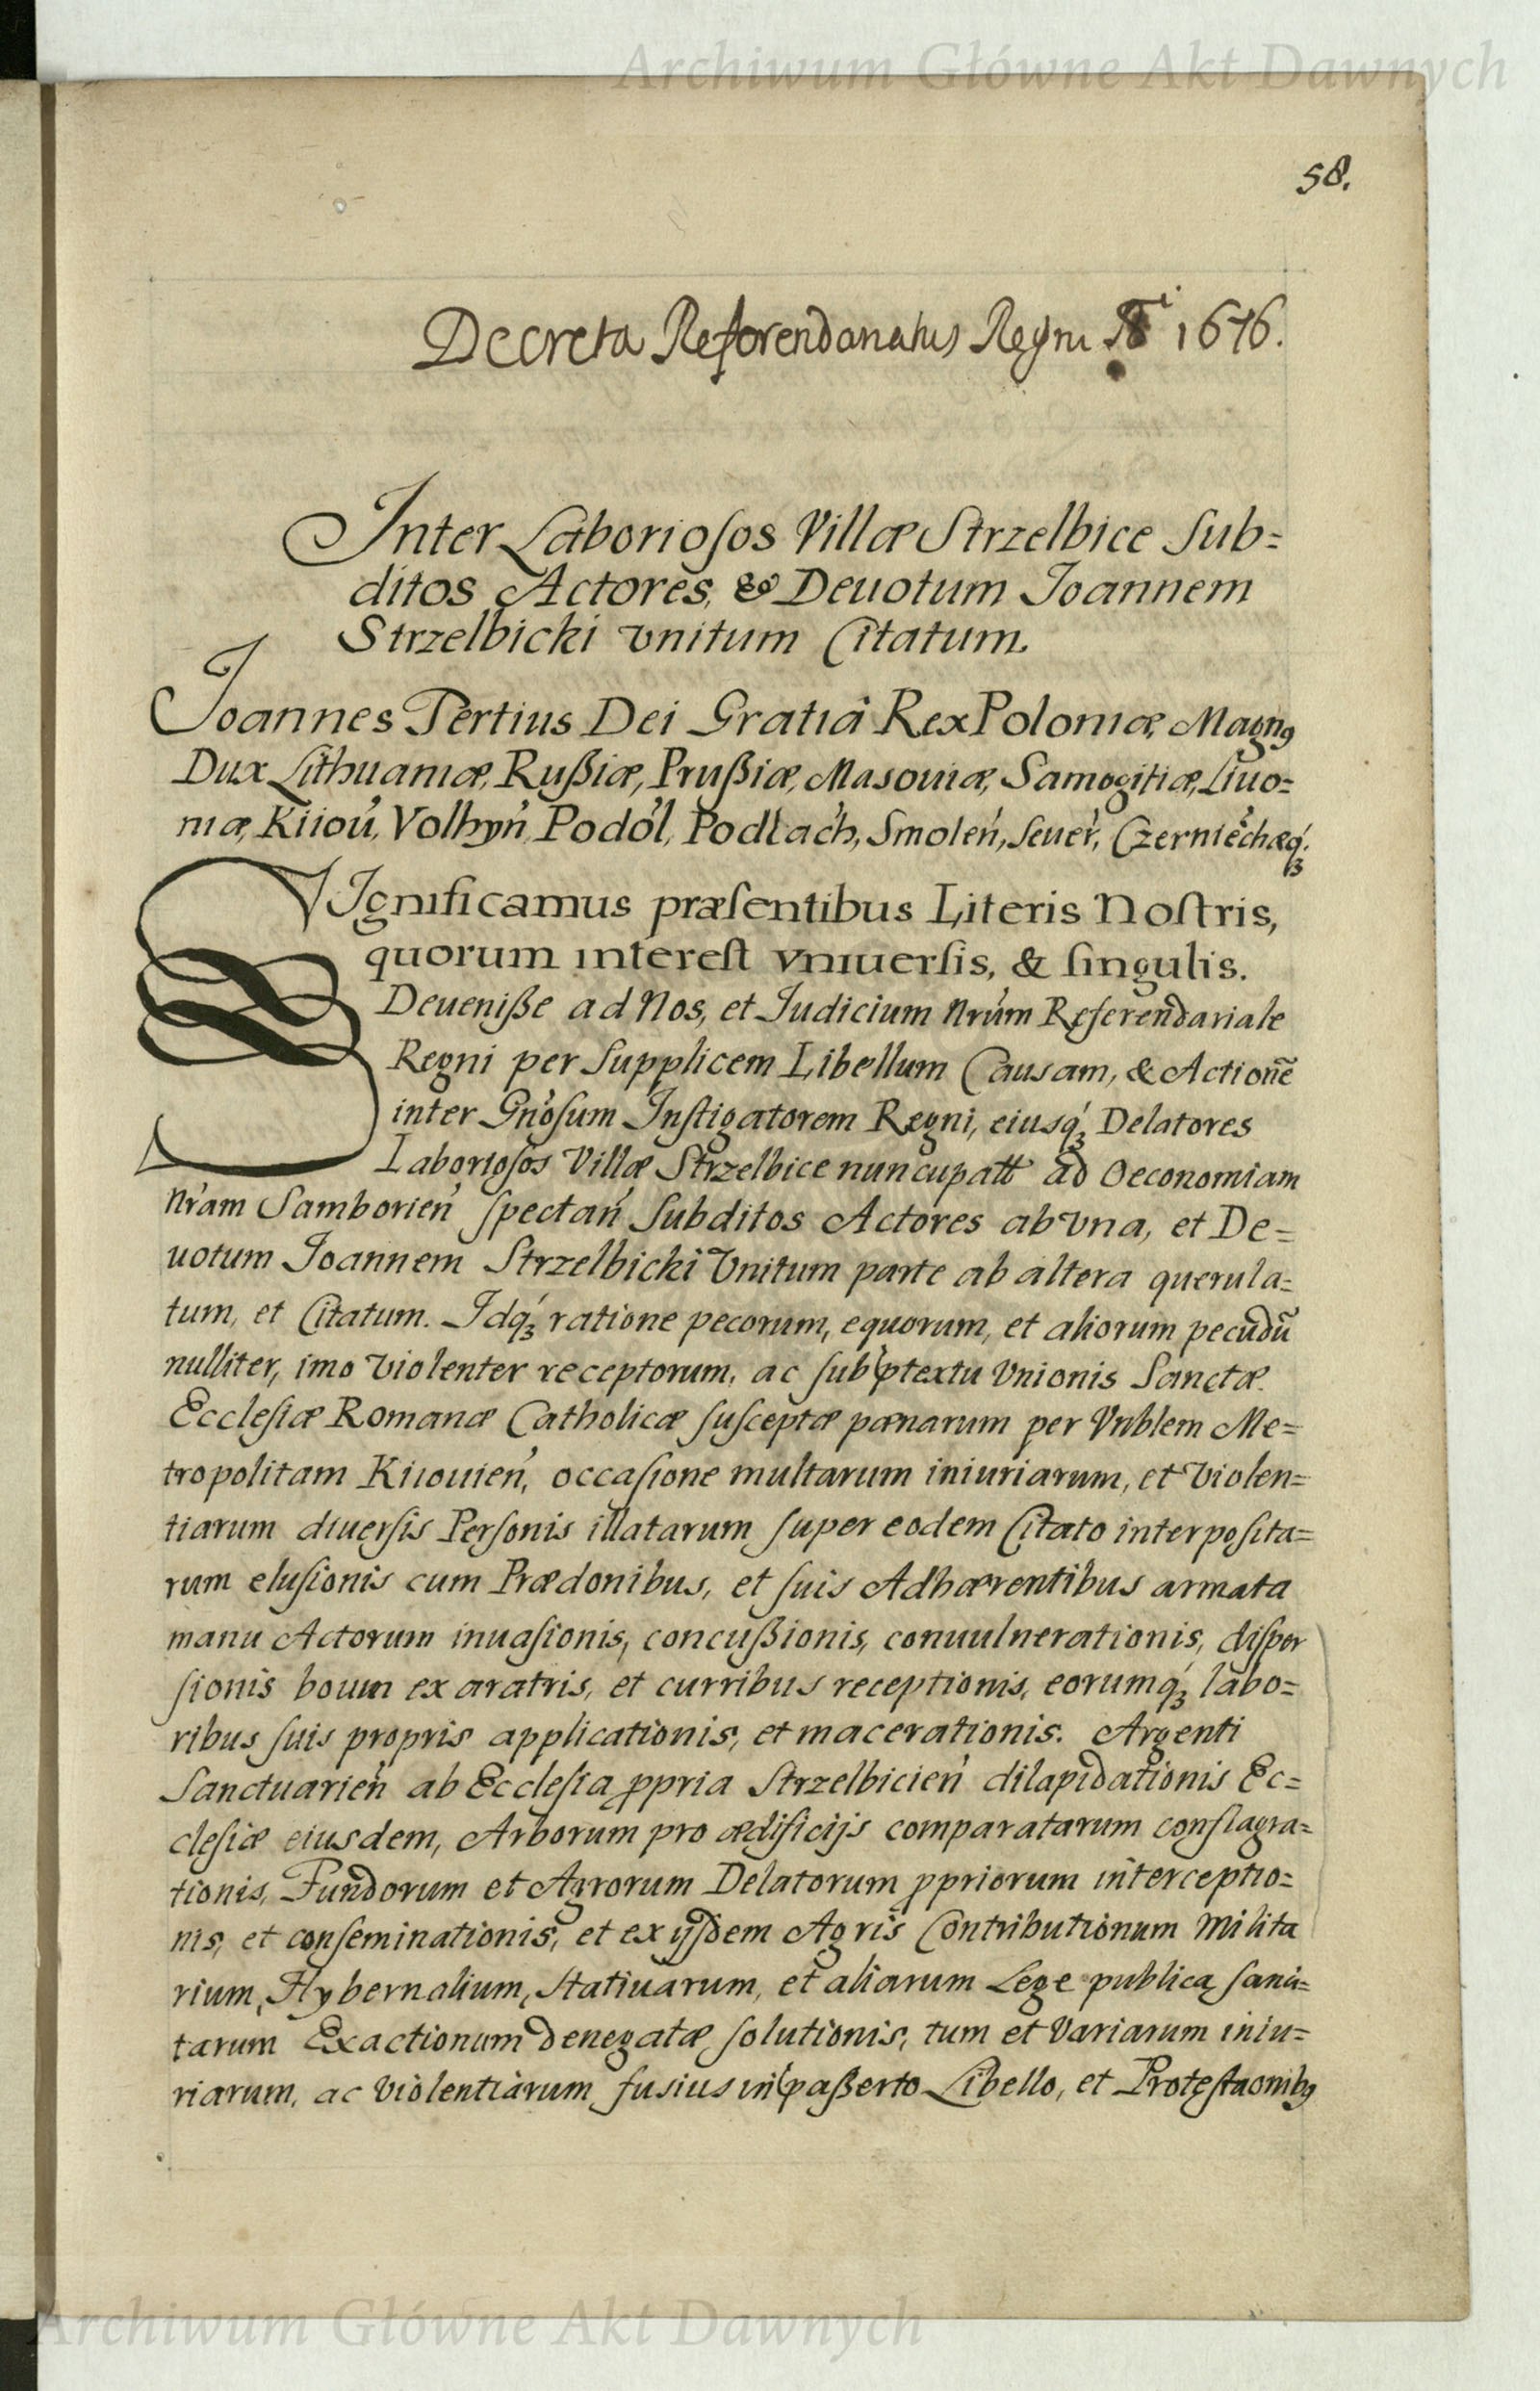 Archiwum Główne Akt Dawnych
58.
Decreta Referendariatus Regni 1676.
Inter Laboriosos Villæ Strzelbice sub=
ditos Actores, & Deuotum Joannem
Strzelbicki vnitum Citatum.
Joannes Tertius Dei Gratiâ Rex Poloniæ, Magnꝰ
Dux Lithuaniæ, Rußiæ, Prußiæ, Masouiæ, Samogitiæ, Liuo=
niæ, Kiiou̓, Volhyn̓, Podol̓, Podlach̓, Smolen̓, Seuer̓, Czerniechæq́ꝫ.
SIgnificamus præsentibus Literis Nostris,
quorum interest vniuersis, & singulis.
Deueniße ad Nos, et Judicium Nrúm Referendariale
Regni per supplicem Libellum Causam, & Actionē
inter Gnósum Instigatorem Regni, eiusq́ꝫ Delatores
Laboriosos Villæ Strzelbice nuncupatt ad Oeconomiam
Nrám Samborien̓ spectan̓ subditos Actores ab vna, et De=
uotum Joannem Strzelbicki Vnitum parte ab altera querula=
tum, et Citatum. Idq́ꝫ ratione pecorum, equorum, et aliorum pecudū
nulliter, imo violenter receptorum, ac sub ptextu Vnionis Sanctæ
Ecclesiæ Romanæ Catholicæ susceptæ pœnarum per Vnblem Me=
tropolitam Kiiouien̓, occasione multarum iniuriarum, et violen=
tiarum diuersis Personis illatarum super eodem Citato interposita=
rum elusionis cum Prædonibus, et suis Adhærentibus armata
manu Actorum inuasionis, concußionis, conuulnerationis, disper
sionis boum ex aratris, et curribus receptionis, eorumq́ꝫ labo=
ribus suis propris applicationis, et macerationis. Argenti
Sanctuarien̓ ab Ecclesia ꝓpria Strzelbicien̓ dilapidationis Ec=
clesiæ eiusdem, Arborum pro ædificijs comparatarum conflagra=
tionis, Fundorum et Agrorum Delatorum ꝓpriorum interceptio=
nis, et conseminationis, et ex ijsdem Agris Contributionum Milita
rium, Hybernalium, Statiuarum, et aliarum Lege publica sanci=
tarum Exactionum denegatæ solutionis, tum et Variarum iniu=
riarum, ac violentiarum fusius in paßerto Libello, et Protestaonibꝰ
Archiwum Główne Akt Dawnych